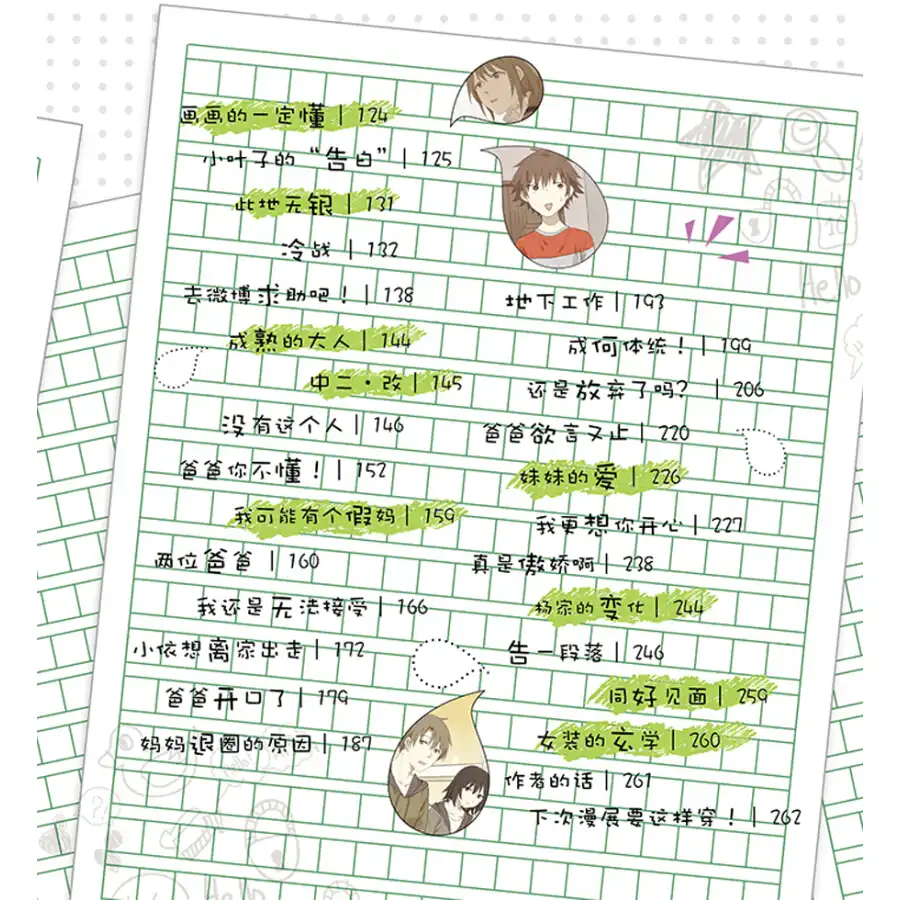 画画的一定懂 | 124
小叶子的“告白” | 125
此地无银 | 131
冷战 | 132
去微博求助吧！ | 138
成熟的大人 | 144
中二·改 | 145
没有这个人 | 146
爸爸你不懂！ | 152
我可能有个假妈 | 159
两位爸爸 | 160
我还是无法接受 | 166
小依想离家出走 | 172
爸爸开口了 | 179
妈妈退圈的原因 | 187
地下工作 | 193
成何体统！ | 199
还是放弃了吗？ | 206
爸爸欲言又止 | 220
妹妹的爱 | 226
我更想你开心 | 227
真是傲娇啊 | 238
杨家的变化 | 244
告一段落 | 246
同好见面 | 259
女装的玄学 | 260
作者的话 | 261
下次漫展要这样穿！ | 262
Hello
Hello